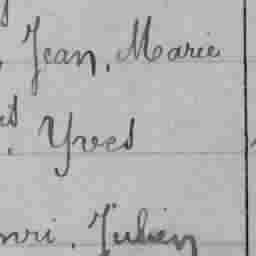 Jean, Marie
Yves
nri, Julien